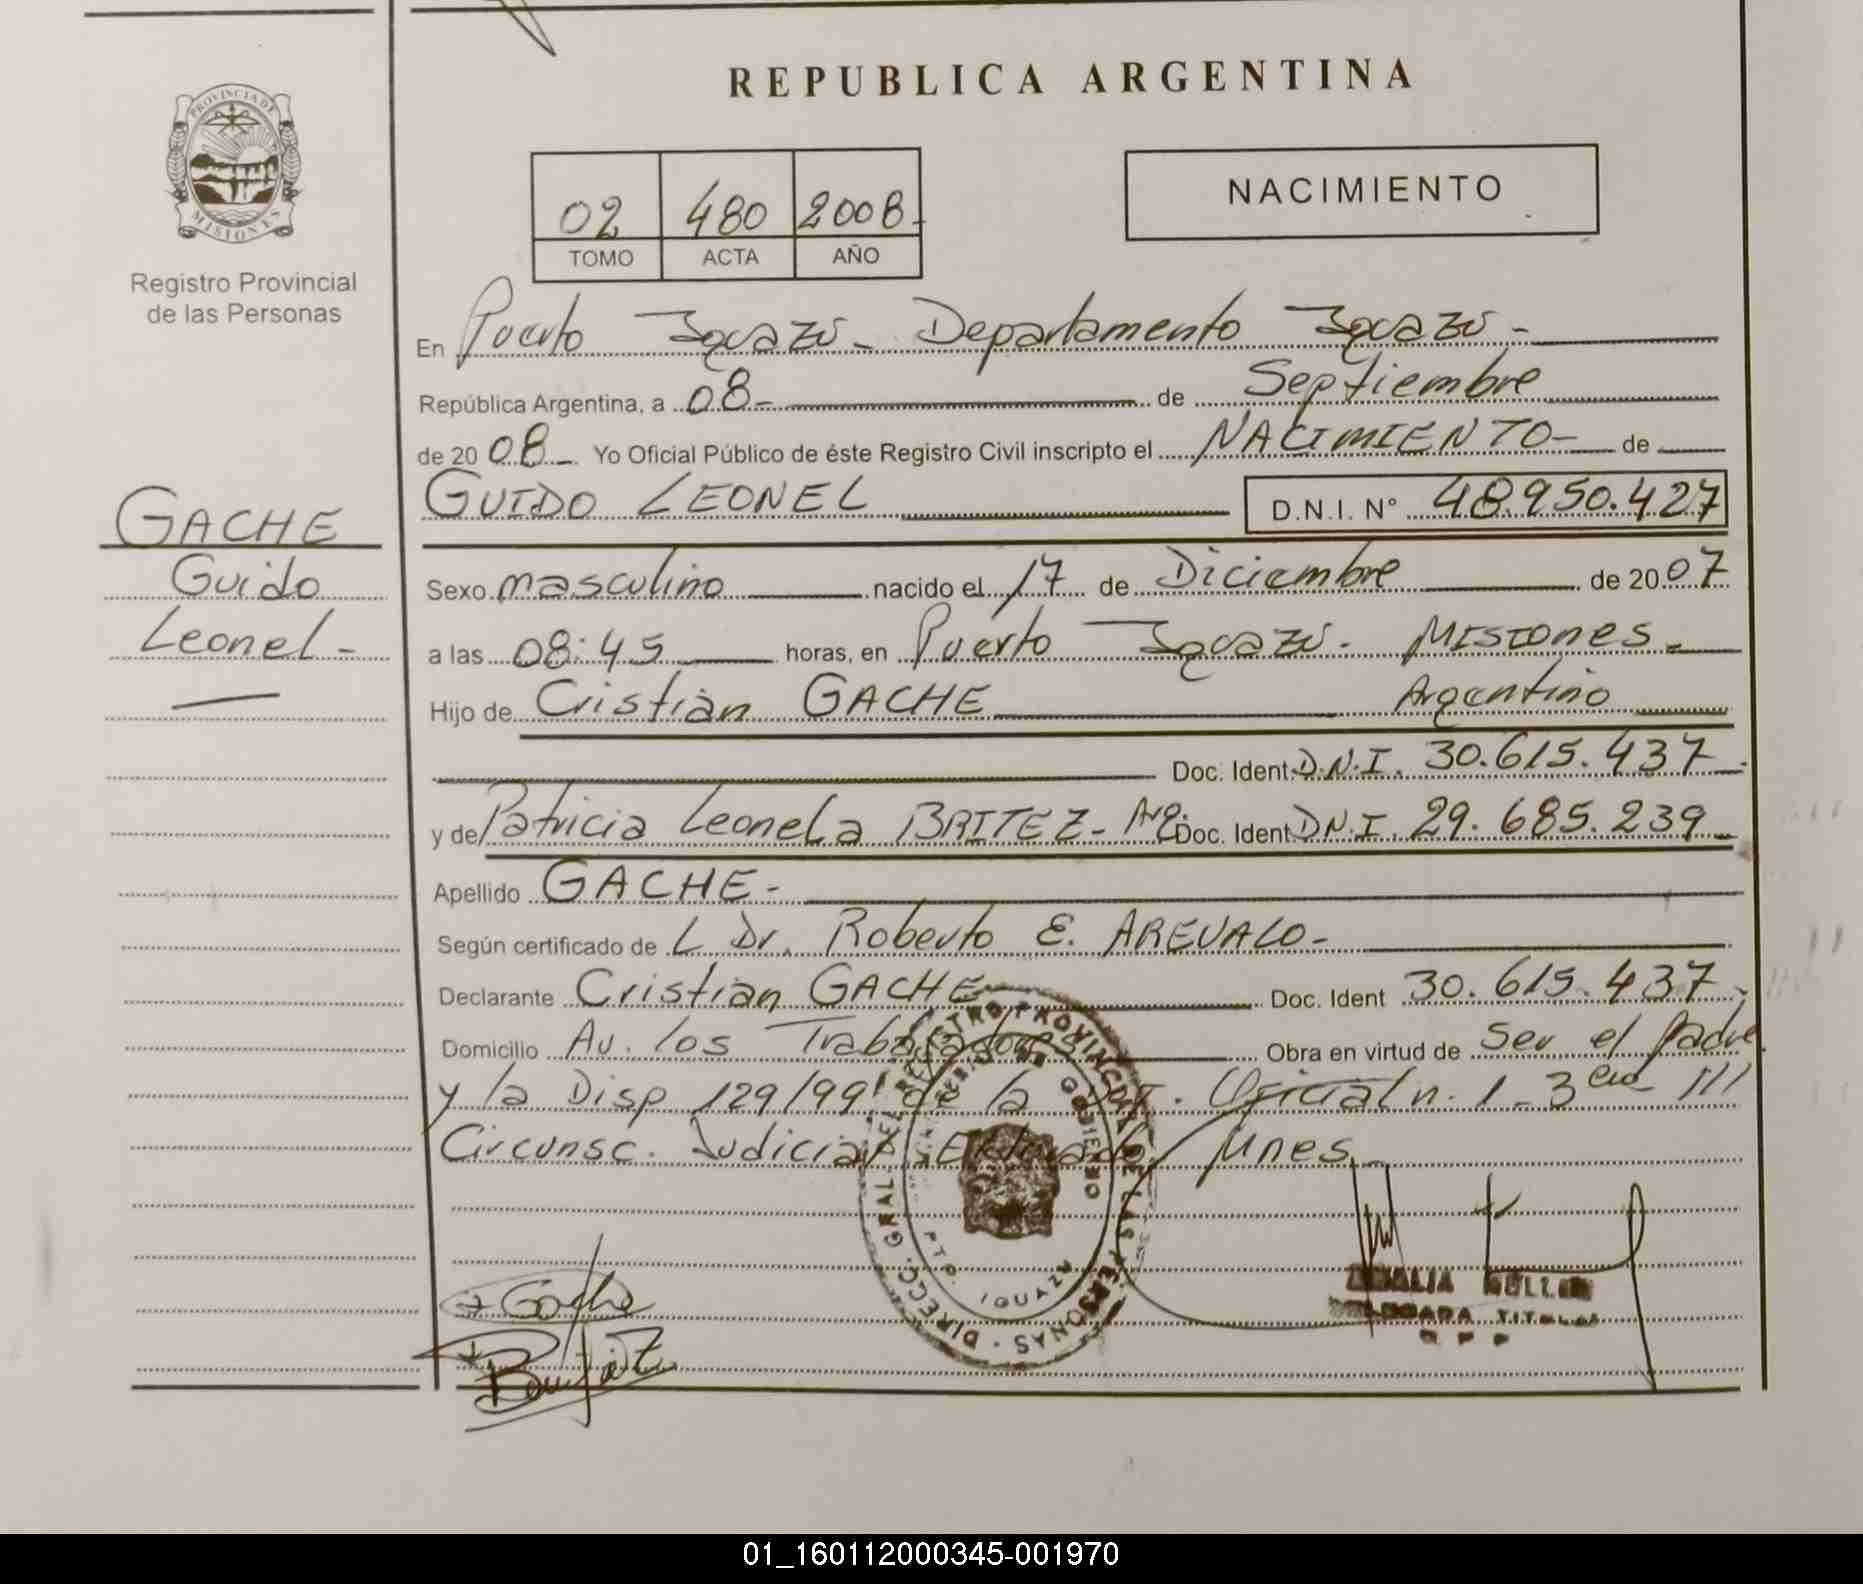 REPUBLICA ARGENTINA
PROVINCIA DE MISIONES
Registro Provincial
de las Personas
02 480 2008-
TOMO ACTA AÑO
NACIMIENTO
En Puerto Iguazú - Departamento Iguazú -
República Argentina, a 08- de Septiembre
de 2008- Yo Oficial Público de éste Registro Civil inscripto el NACIMIENTO- de
GUIDO LEONEL D.N.I. N° 48.950.427
GACHE
Guido
Leonel -
Sexo masculino nacido el 17 de Diciembre de 2007
a las 08:45 horas, en Puerto Iguazú. MISIONES-
Hijo de Cristian GACHE Argentino
Doc. Ident. D.N.I. 30.615.437-
y de Patricia Leonela BRITEZ- Arg. Doc. Ident. D.N.I. 29.685.239-
Apellido GACHE-
Según certificado de L Dr. Roberto E. AREVALO-
Declarante Cristian GACHE Doc. Ident 30.615.437-
Domicilio Av. los Trabajadores Obra en virtud de Ser el padre
y la Disp 129/99 de la Def. Oficial n. 1- 3era III
Circunsc. Judicial Eldorado Mnes-
DIRECC. GRAL DEL REGISTRO PROVINCIAL DE LAS PERSONAS
GOBIERNO
PTO. IGUAZU
Gache
TITULAR
01_160112000345-001970